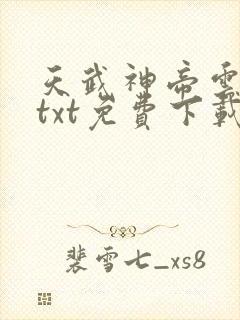 天武神帝電
txt免費下載
裴雪七_xs8